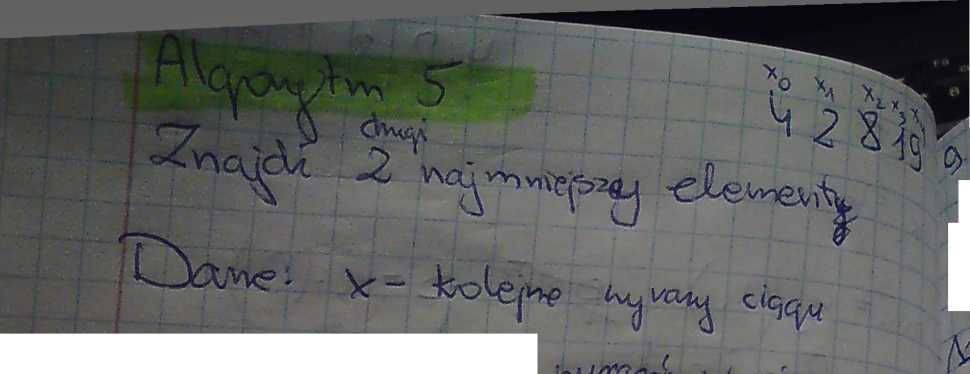 Algorytm 5
x0 x1 x2 x3 x4
4 2 8 1 9
drugi
Znajdź 2 najmniejszy elementy
Dane: x - kolejne wyrazy ciągu